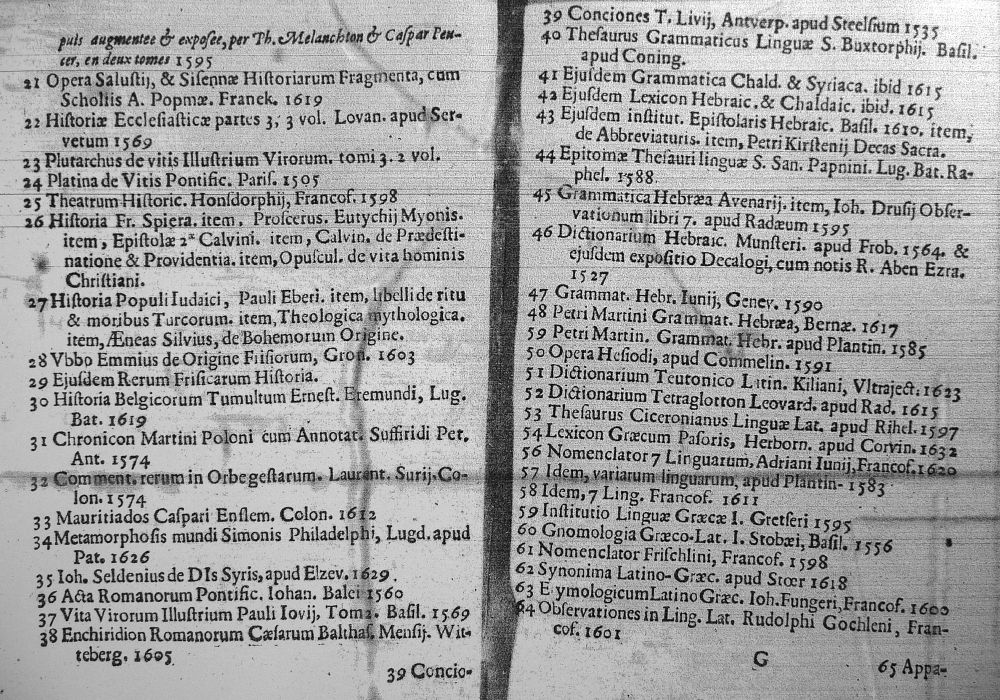 puis augmentee & exposee, per Th. Melanchton & Caspar Peu-
cer, en deux tomes 1595
21 Opera Salustij, & Sisennæ Historiarum Fragmenta, cum
Scholiis A. Popmæ. Franek. 1619
22 Historiæ Ecclesiasticæ partes 3, 3 vol. Lovan. apud Ser-
verum 1569
23 Plutarchus de vitis Illustrium Virorum. tomi 3. 2 vol.
24 Platina de Vitis Pontific. Paris. 1505
25 Theatrum Historic. Honsdorphij, Francof. 1598
26 Historia Fr. Spiera. item, Proscerus. Eutychij Myonis.
item, Epistolæ 2æ Calvini. item, Calvin. de Prædesti-
natione & Providentia. item, Opuscul. de vita hominis
Christiani.
27 Historia Populi Iudaici, Pauli Eberi. item, libelli de ritu
& moribus Turcorum. item, Theologica mythologica.
item, Æneas Silvius, de Bohemorum Origine.
28 Vbbo Emmius de Origine Frisiorum, Gron. 1603
29 Ejusdem Rerum Frisicarum Historia.
30 Historia Belgicorum Tumultum Ernest. Eremundi, Lug.
Bat. 1619
31 Chronicon Martini Poloni cum Annotat. Suffiridi Pet.
Ant. 1574
32 Comment. rerum in Orbe gestarum. Laurent. Surij. Co-
lon. 1574
33 Mauritiados Caspari Ensлem. Colon. 1612
34 Metamorphosis mundi Simonis Philadelphi, Lugd. apud
Pat. 1626
35 Ioh. Seldenius de DIs Syris, apud Elzev. 1629.
36 Acta Romanorum Pontific. Iohan. Balei 1560
37 Vita Virorum Illustrium Pauli Iovij, Tom 2. Basil. 1569
38 Enchiridion Romanorum Cæsarum Balthas. Mensij. Wit-
teberg. 1605
39 Concio-
39 Conciones T. Livij, Antverp. apud Steelsium 1535
40 Thesaurus Grammaticus Linguæ S. Buxtorphij. Basil.
apud Coning.
41 Ejusdem Grammatica Chald. & Syriaca. ibid 1615
42 Ejusdem Lexicon Hebraic. & Chaldaic. ibid. 1615
43 Ejusdem institut. Epistolaris Hebraic. Basil. 1610. item,
de Abbreviaturis. item, Petri Kirstenij Decas Sacra.
44 Epitomæ Thesauri linguæ S. San. Papnini. Lug. Bat. Ra-
phel. 1588
45 Grammatica Hebræa Avenarij. item, Ioh. Drusij Obser-
vationum libri 7. apud Radæum 1595
46 Dictionarium Hebraic. Munsteri. apud Frob. 1564. &
ejusdem expositio Decalogi, cum notis R. Aben Ezra.
1527
47 Grammat. Hebr. Iunij, Genev. 1590
48 Petri Martini Grammat. Hebræa, Bernæ. 1617
59 Petri Martin. Grammat. Hebr. apud Plantin. 1585
50 Opera Hesiodi, apud Commelin. 1591
51 Dictionarium Teutonico Litin. Kiliani, Vltraject. 1623
52 Dictionarium Tetraglotton Leovard. apud Rad. 1615
53 Thesaurus Ciceronianus Linguæ Lat. apud Rihel. 1597
54 Lexicon Græcum Pasoris, Herborn. apud Corvin. 1632
56 Nomenclator 7 Linguarum, Adriani Iunij, Francof. 1620
57 Idem, variarum linguarum, apud Plantin- 1583
58 Idem, 7 Ling. Francof. 1611
59 Institutio Linguæ Græcæ I. Gretseri 1595
60 Gnomologia Græco-Lat. I. Stobæi, Basil. 1556
61 Nomenclator Frischlini, Francof. 1598
62 Synonima Latino-Græc. apud Stœr 1618
63 E ymologicum Latino Græc. Ioh. Fungeri, Francof. 1600
64 Observationes in Ling. Lat. Rudolphi Gochleni, Fran-
cof. 1601
G
65 Appa-